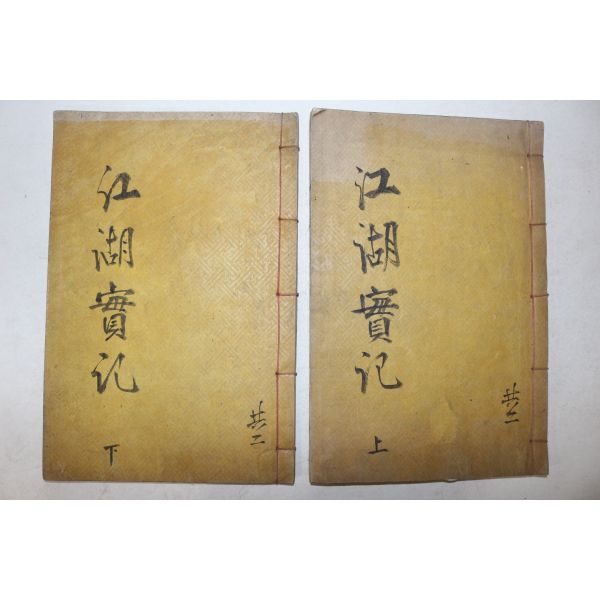 江湖實記
上
共二
江湖實記
下
共二